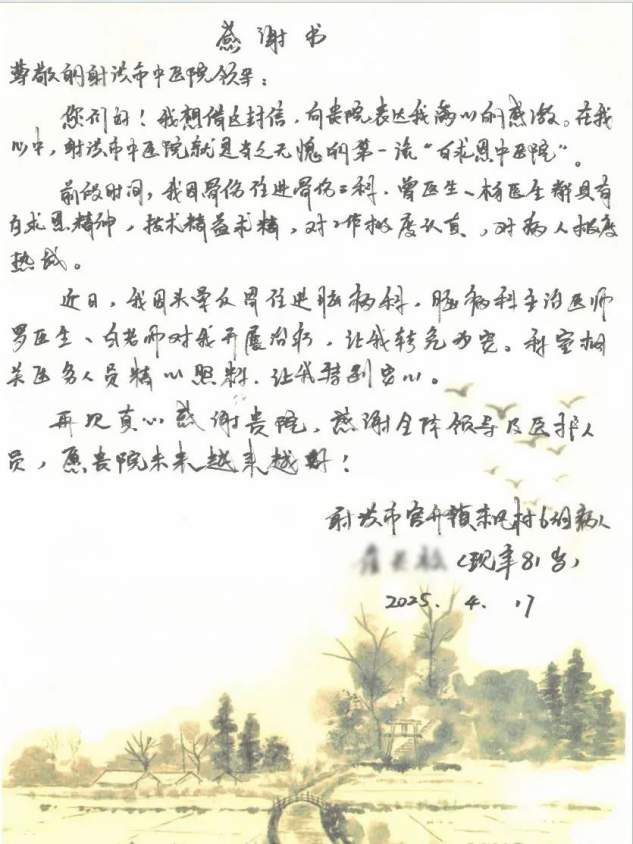 感谢书
尊敬的射洪市中医院领导：
您们好！我想借这封信，向贵院表达我满心的感激。在我
心中，射洪市中医院就是当之无愧的第一流“白求恩中医院”。
前段时间，我因骨伤住进骨伤二科，曾医生、杨医生都具有
白求恩精神，技术精益求精，对工作极度认真，对病人极度
热诚。
近日，我因头晕又另住进脑病科，脑病科主治医师
罗医生、白老师对我开展治疗，让我转危为安。科室相
关医务人员精心照料，让我特别安心。
再次真心感谢贵院，感谢全体领导及医护人
员，愿贵院未来越来越好！
射洪市官升镇村6组病人
（现年81岁）
2025.4.17